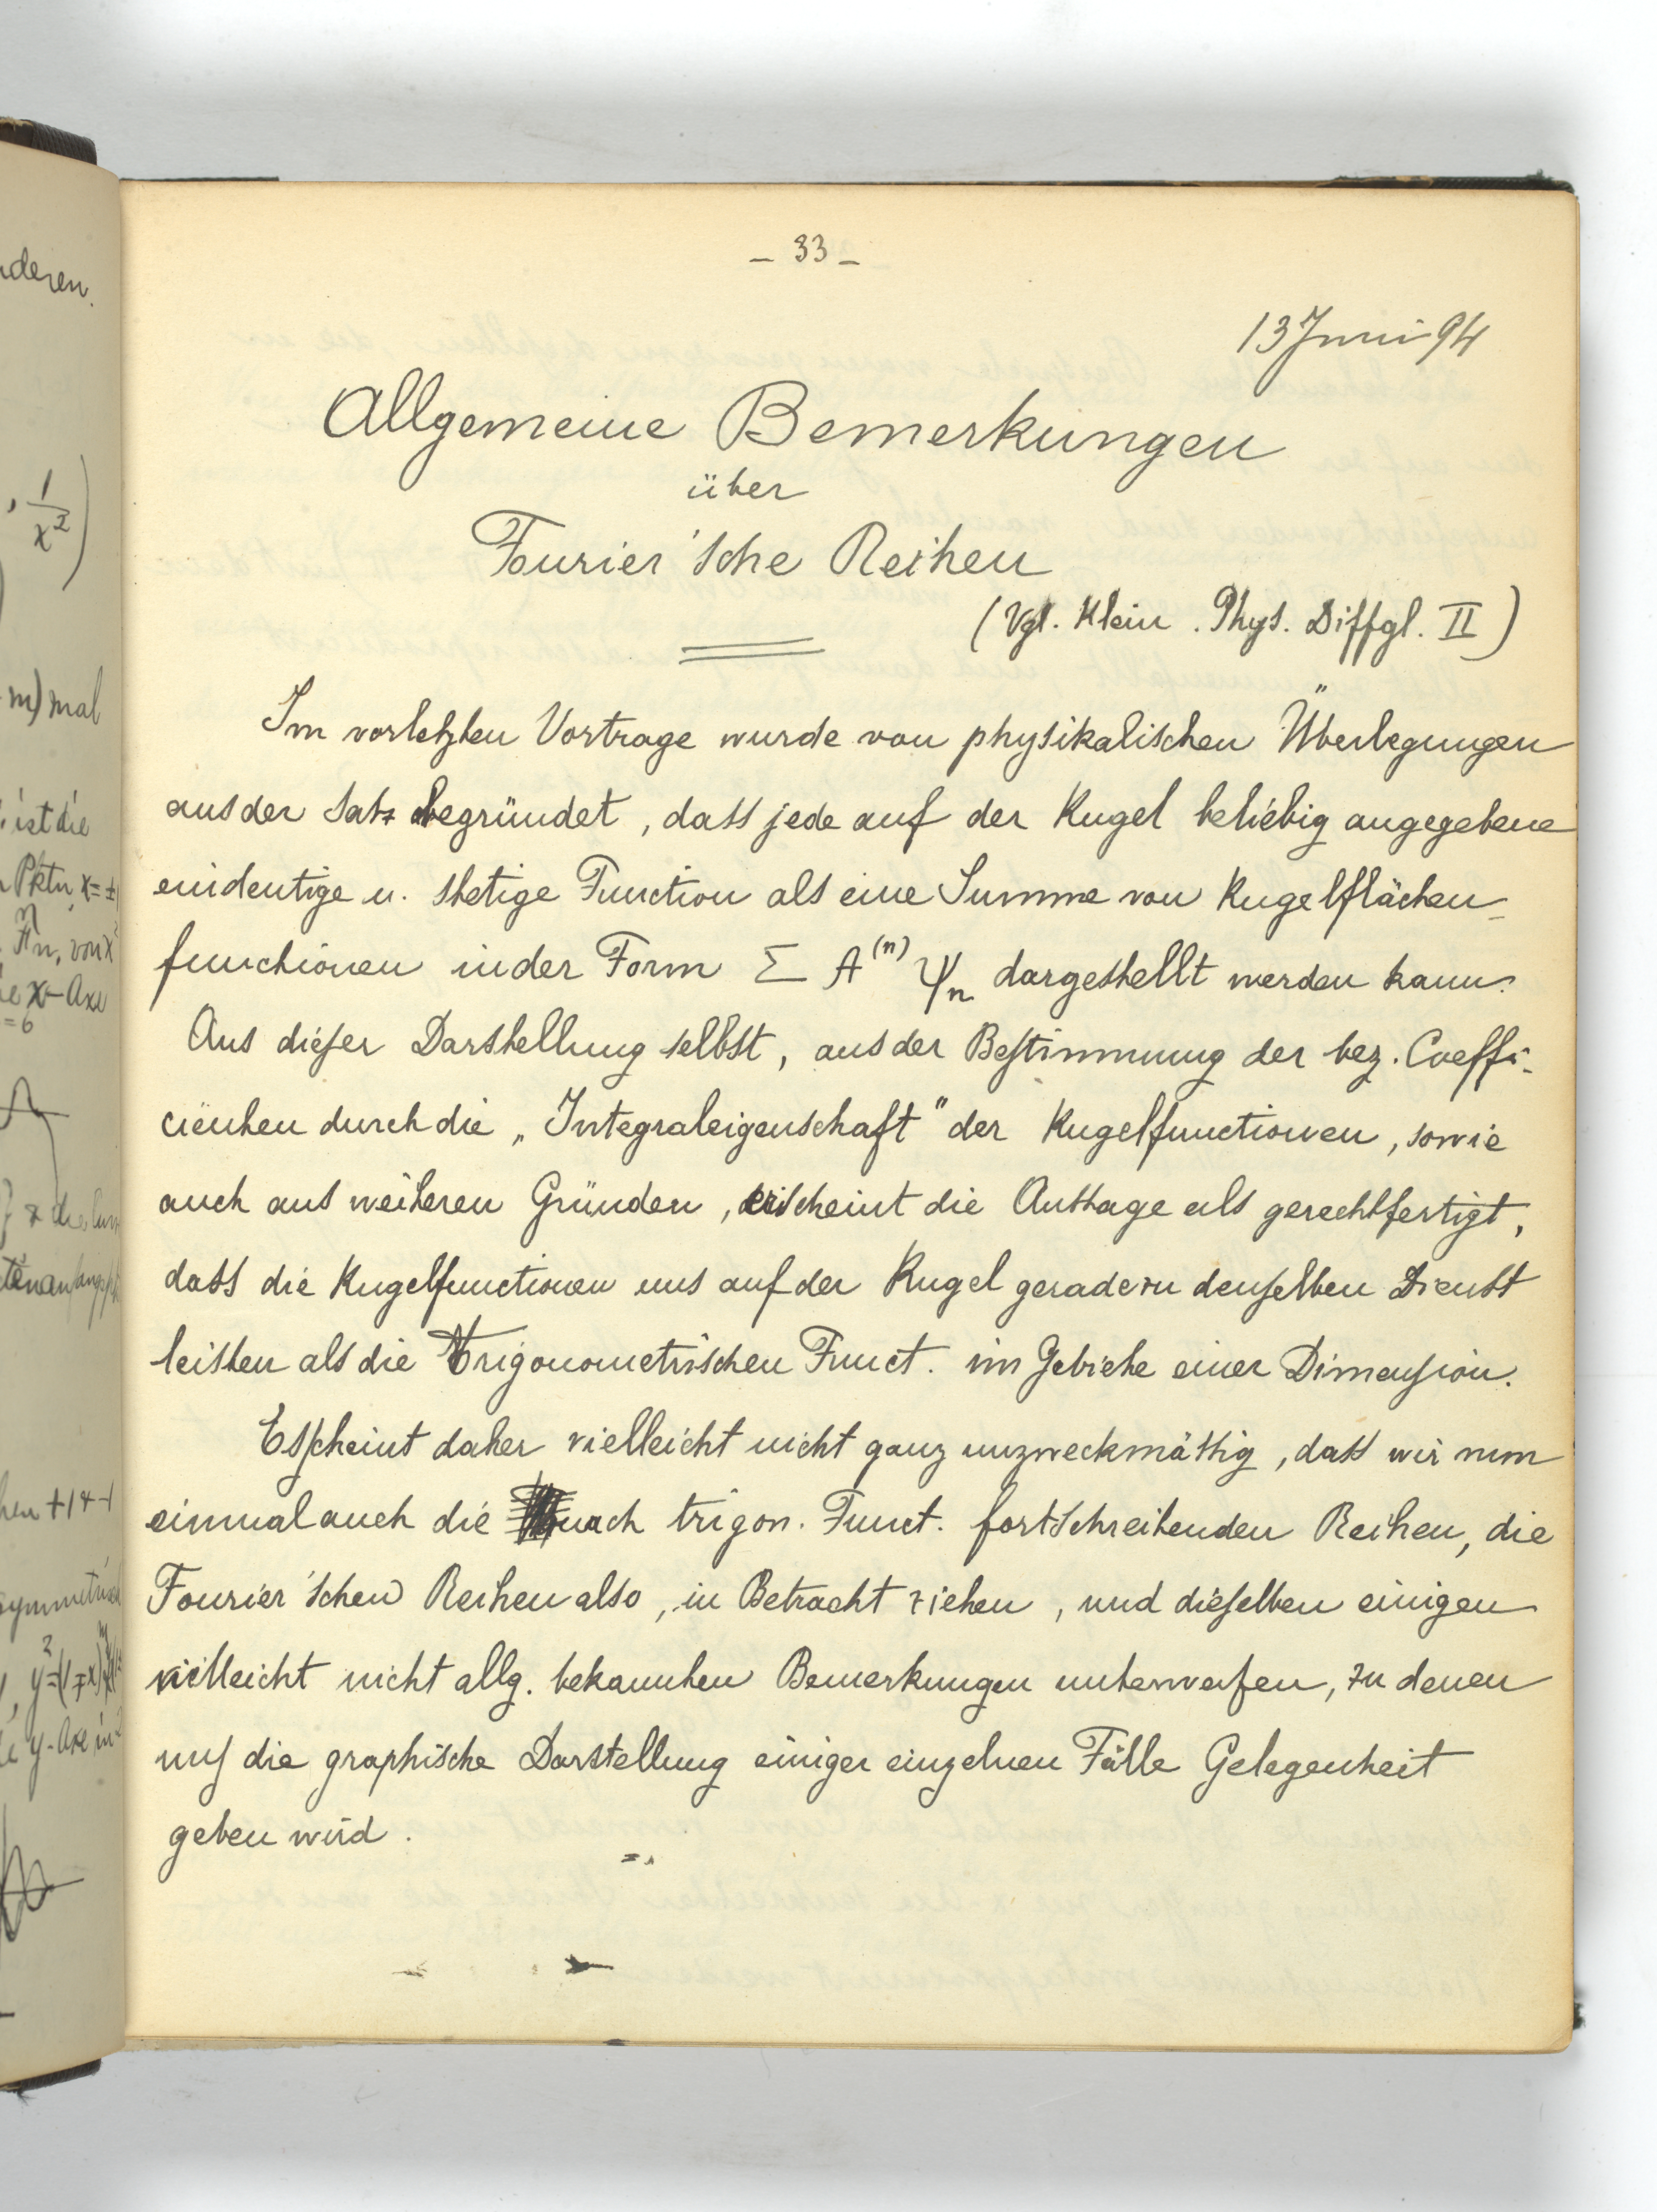 – 33 –
13 Juni 94
Allgemeine Bemerkungen
über
Fourier'sche Reihen
(Vgl. Klein. Phys. Diffgl. II)
Im vorletzten Vortrage wurde von physikalischen Überlegungen
aus der Satz begründet, dass jede auf der Kugel beliebig angegebene
eindeutige u. stetige Function als eine Summe von Kugelflächen-
functionen in der Form Σ A⁽ⁿ⁾ ψₙ dargestellt werden kann.
Aus dieser Darstellung selbst, aus der Bestimmung der bez. Coeffi-
cienten durch die „Integraleigenschaft" der Kugelfunctionen, sowie
auch aus weiteren Gründen, erscheint die Aussage als gerechtfertigt,
dass die Kugelfunctionen uns auf der Kugel geradezu denselben Dienst
leisten als die Trigonometrischen Funct. im Gebiete einer Dimension.
Es scheint daher vielleicht nicht ganz unzweckmässig, dass wir nun
einmal auch die nach trigon. Funct. fortschreitenden Reihen, die
Fourier'schen Reihen also, in Betracht ziehen, und dieselben einigen
vielleicht nicht allg. bekannten Bemerkungen unterwerfen, zu denen
uns die graphische Darstellung einiger einzelnen Fälle Gelegenheit
geben wird.
nderen.
, 1/x²)
m) mal
ist die
Pktn x = ±
von x
x-Axe
= 6
+1 & -1
symmetrisch
y-Axe in